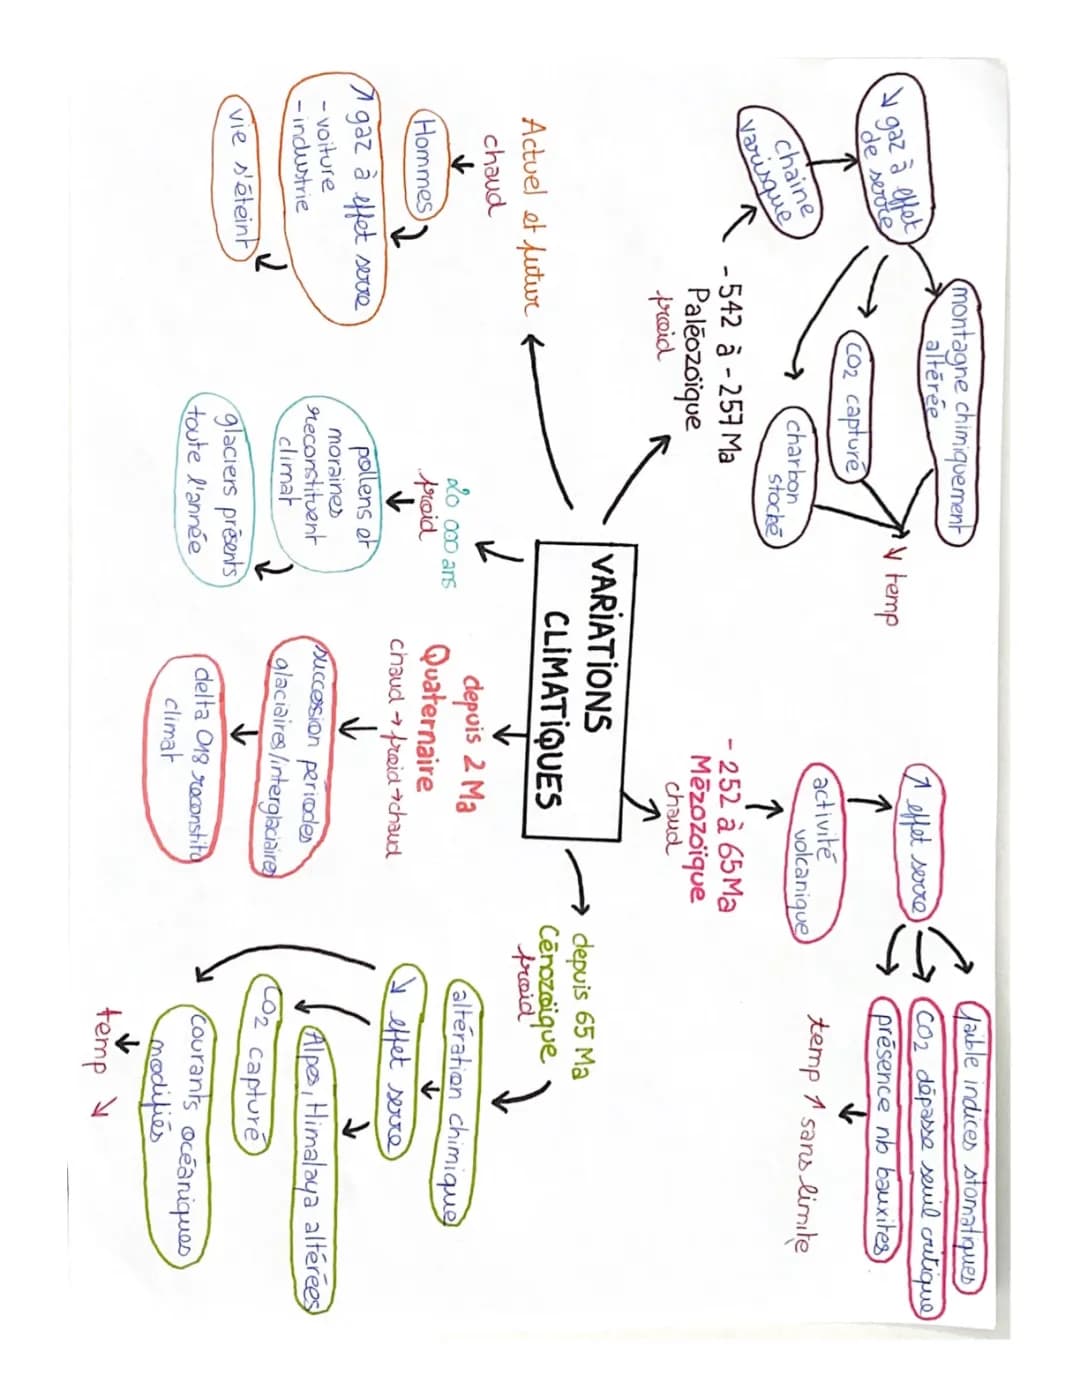 VARIATIONS
CLIMATIQUES
-542 à -257 Ma
Paléozoïque
froid
chaîne
varisque
↘ gaz à effet
de serre
montagne chimiquement
altérée
CO2 capturé
charbon
stocké
↘ temp
-252 à 65 Ma
Mézozoïque
chaud
activité
volcanique
↗ effet serre
faible indices stomatiques
CO2 dépasse seuil critique
présence nb bauxites
temp ↗ sans limite
depuis 65 Ma
Cénozoïque
froid
altération chimique
↘ effet serre
Alpes, Himalaya altérées
CO2 capturé
courants océaniques
modifiés
temp ↘
depuis 2 Ma
Quaternaire
chaud → froid → chaud
succession périodes
glaciaires/interglaciaires
delta O18 reconstitu
climat
20 000 ans
froid
pollens et
moraines
reconstituent
climat
glaciers présents
toute l'année
Actuel et futur
chaud
Hommes
↗ gaz à effet serre
- voiture
- industrie
vie s'éteint